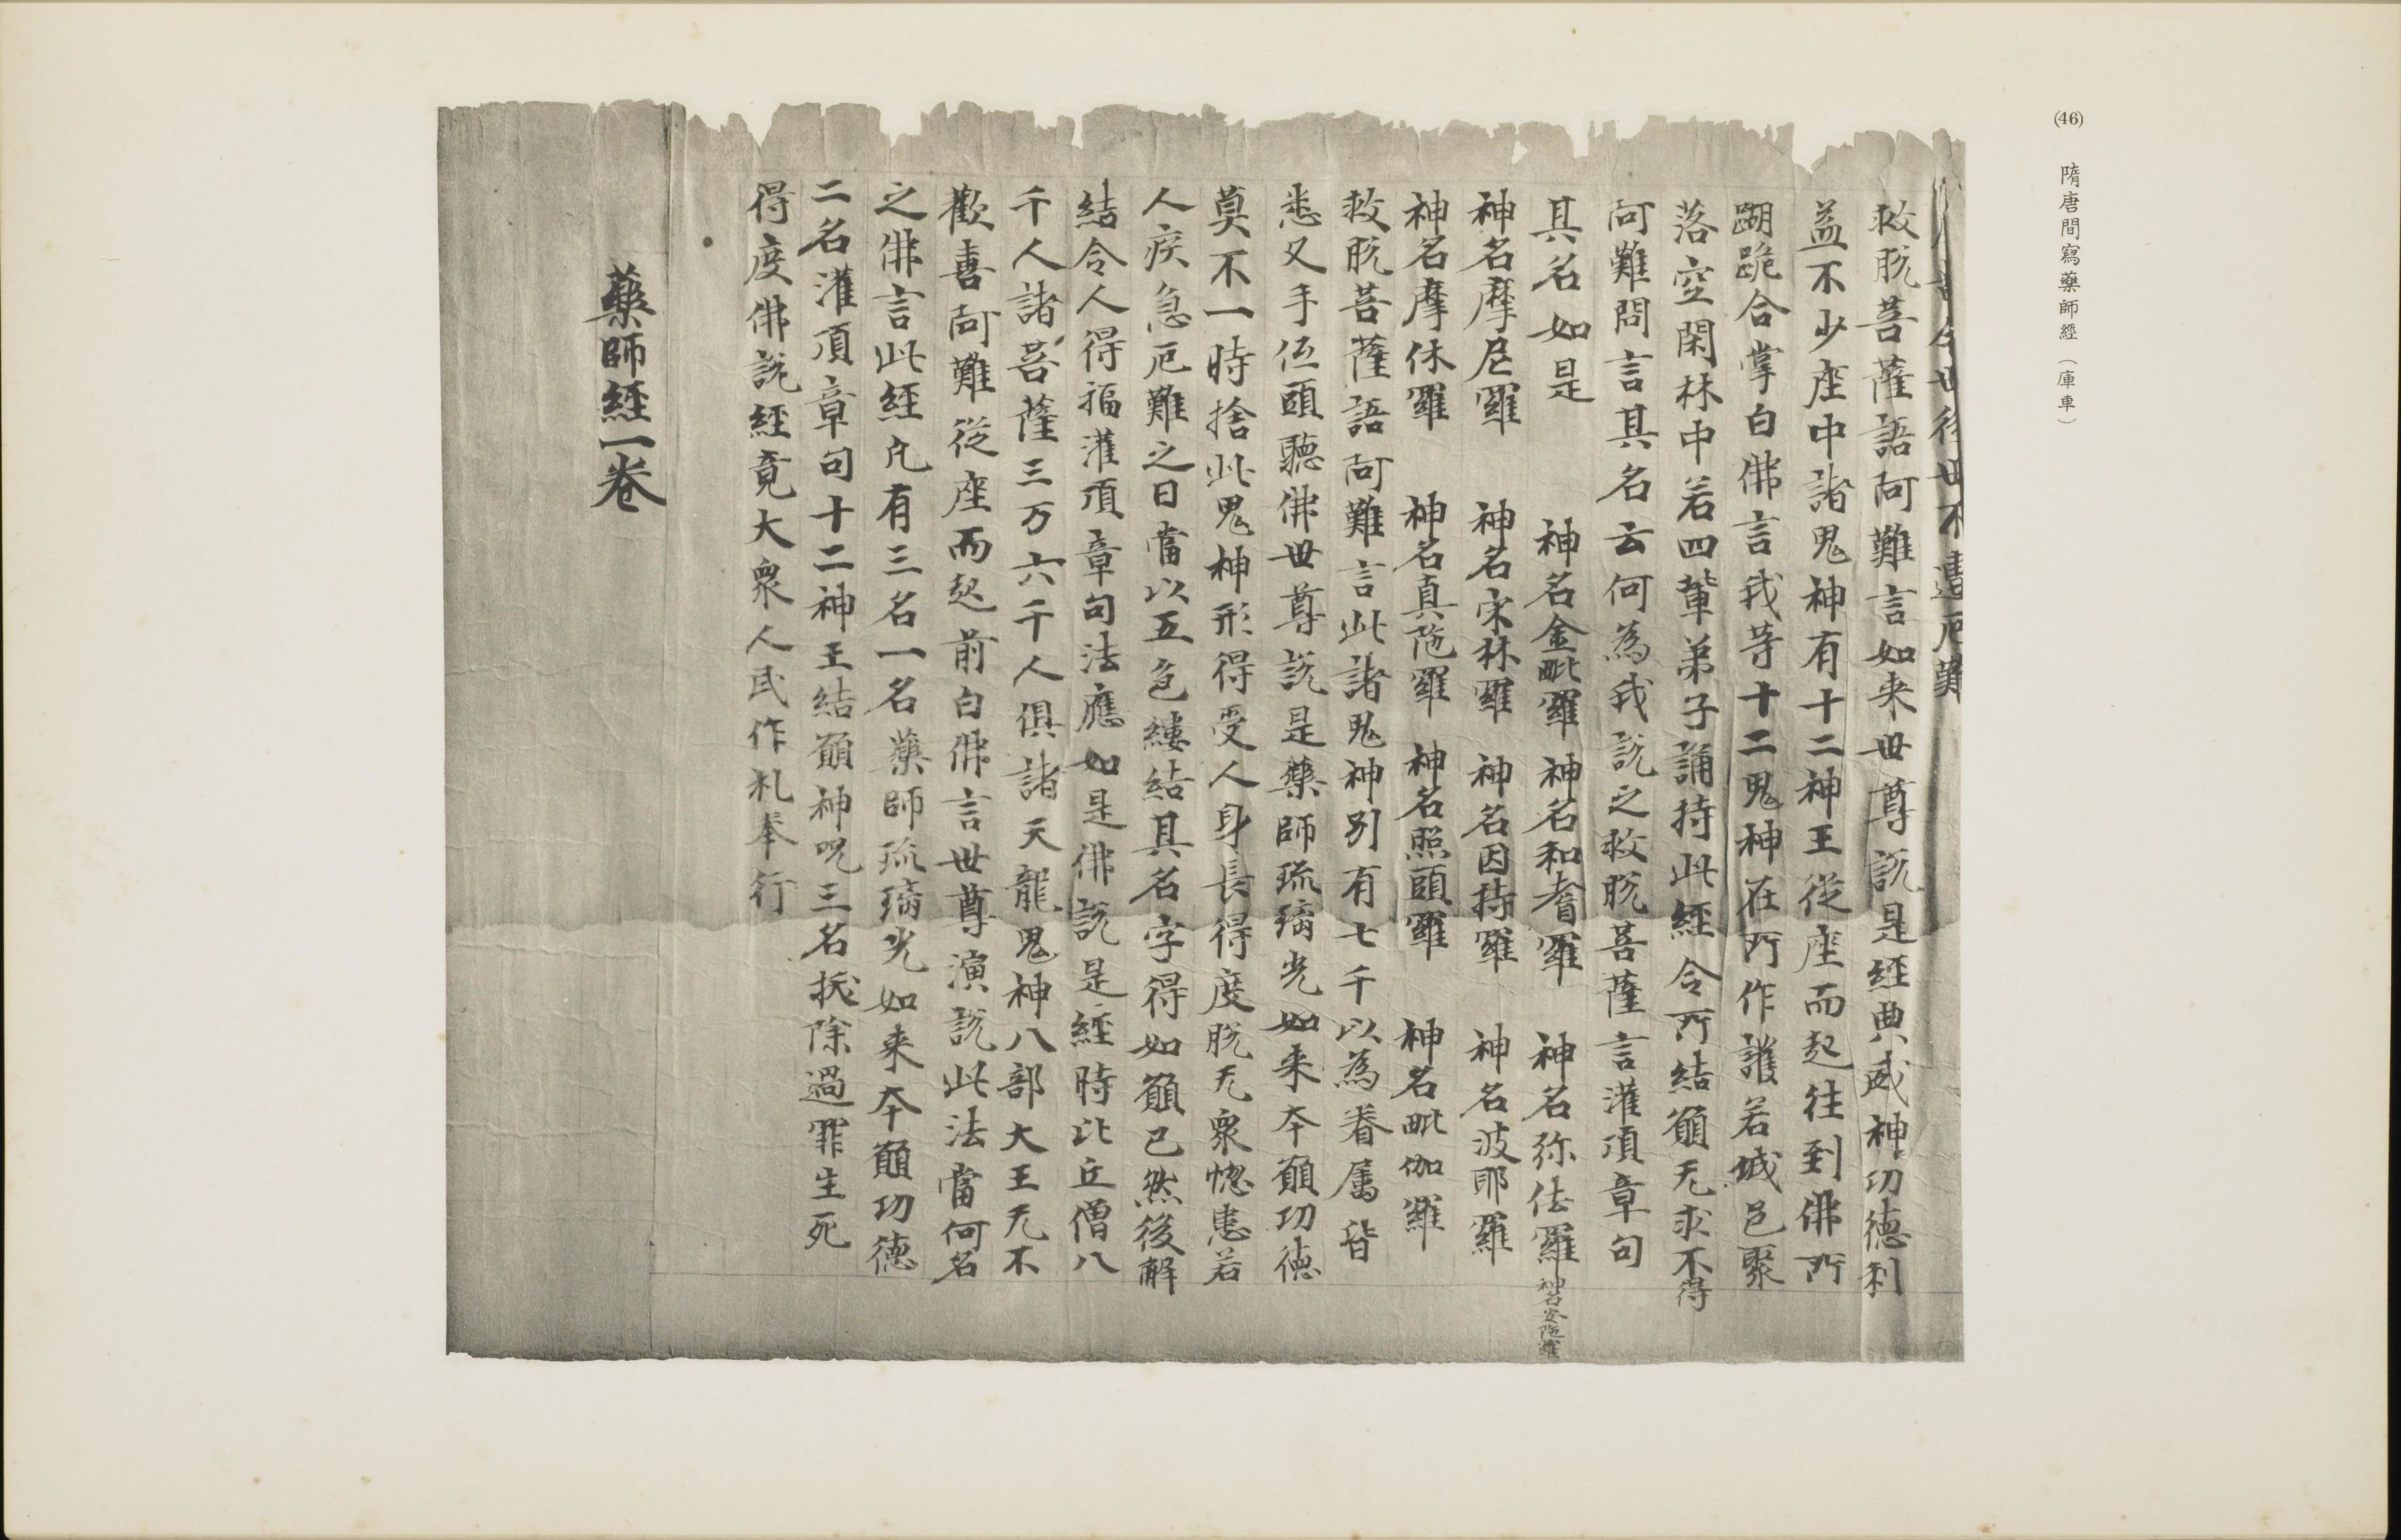 (46) 隋唐間寫藥師經（庫車）
今世後世不遭厄難
救脫菩薩語阿難言如来世尊說是經典威神功德利
益不少座中諸鬼神有十二神王從座而起往到佛所
䠒跪合掌白佛言我等十二鬼神在所作護若城邑聚
落空閑林中若四輩弟子誦持此經令所結願无求不得
阿難問言其名云何為我說之救脫菩薩言灌頂章句
其名如是　神名金毗羅　神名和耆羅　神名弥佉羅　神名安陁羅
神名摩尼羅　神名宋林羅　神名因持羅　神名波耶羅
神名摩休羅　神名真陁羅　神名照頭羅　神名毗伽羅
救脫菩薩語阿難言此諸鬼神別有七千以為眷属皆
悉叉手伍頭聽佛世尊說是藥師琉璃光如来本願功德
莫不一時捨此鬼神形得受人身長得度脫无衆惚患若
人疾急厄難之日當以五色縷結其名字得如願已然後解
結令人得福灌頂章句法應如是佛說是經時比丘僧八
千人諸菩薩三万六千人俱諸天龍鬼神八部大王无不
歡喜阿難從座而起前白佛言世尊演說此法當何名
之佛言此經凢有三名一名藥師琉璃光如来本願功德
二名灌頂章句十二神王結願神呪三名拔除過罪生死
得度佛說經竟大衆人民作礼奉行
藥師經一卷